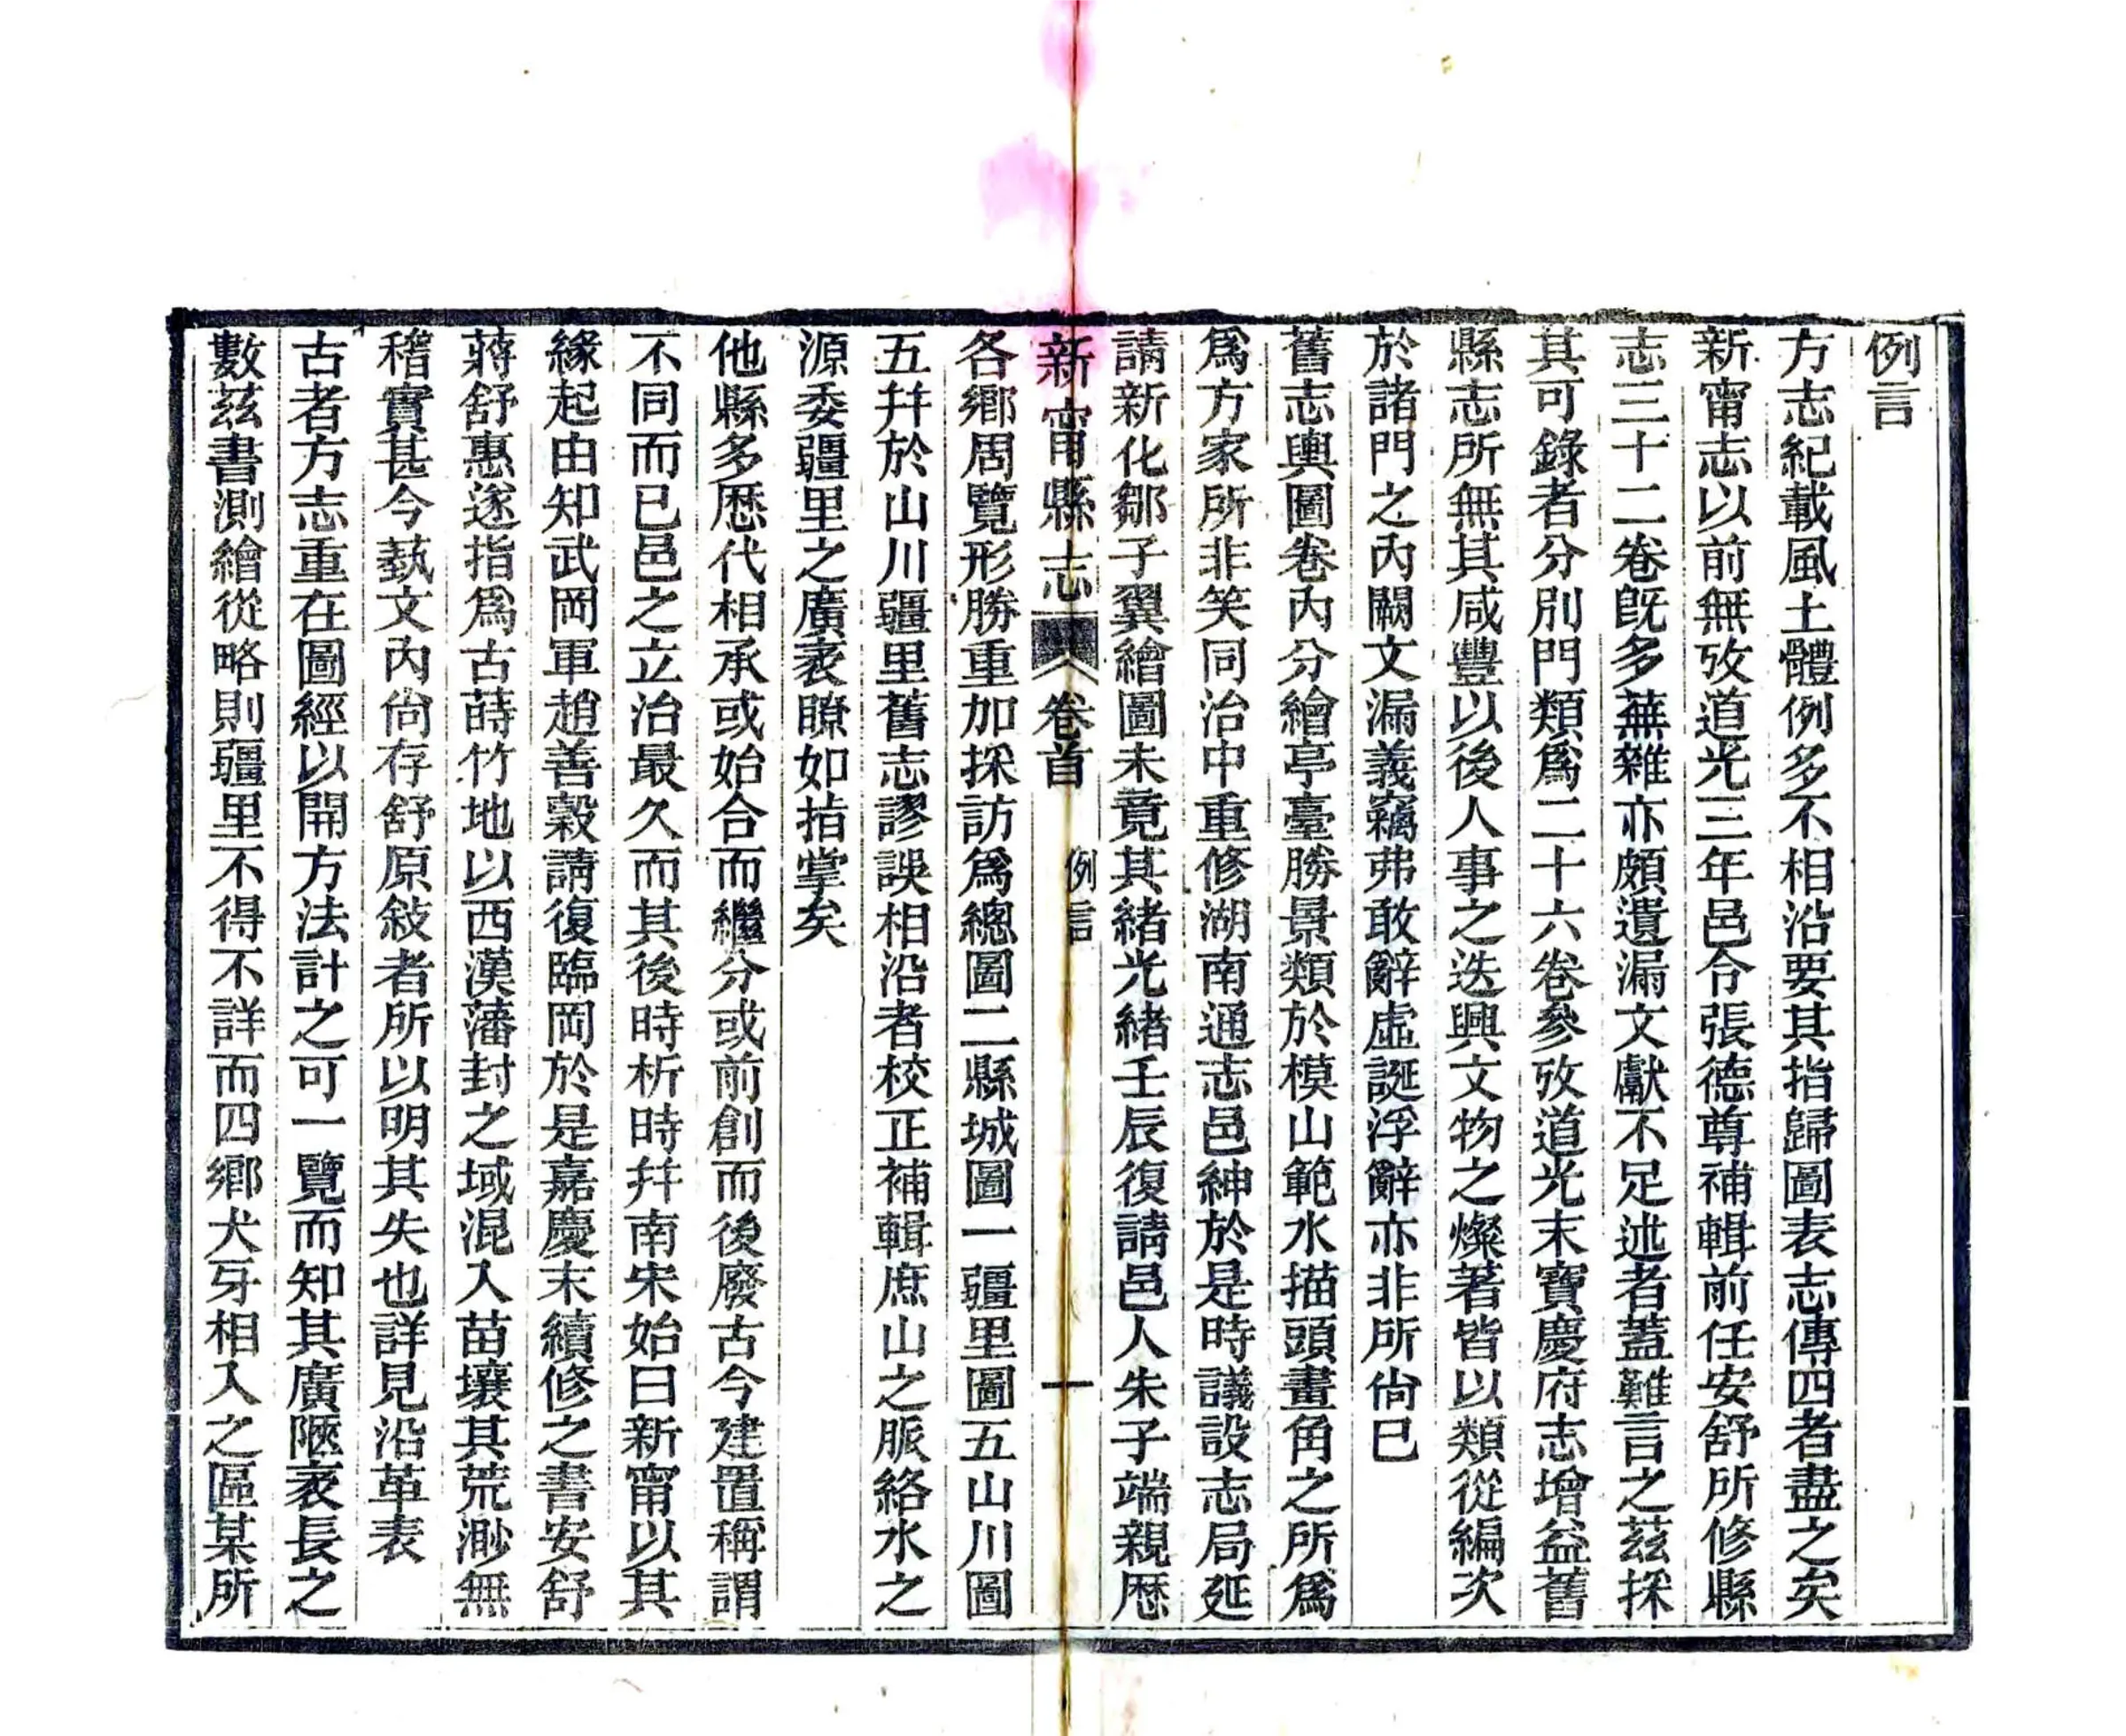 例言
方志紀載風土體例多不相沿要其指歸圖表志傳四者盡之矣
新甯志以前無攷道光三年邑令張德尊補輯前任安舒所修縣
志三十二卷旣多蕪雜亦頗遺漏文獻不足述者蓋難言之茲採
其可錄者分別門類爲二十六卷參攷道光末寶慶府志增益舊
縣志所無其咸豐以後人事之迭興文物之燦著皆以類從編次
於諸門之內闕文漏義竊弗敢辭虛誕浮辭亦非所尙已
舊志輿圖卷內分繪亭臺勝景類於模山範水描頭畫角之所爲
爲方家所非笑同治中重修湖南通志邑紳於是時議設志局延
請新化鄒子翼繪圖未竟其緒光緒壬辰復請邑人朱子端親歷
新甯縣志 卷首 例言 一
各鄉周覽形勝重加採訪爲總圖二縣城圖一疆里圖五山川圖
五幷於山川疆里舊志謬誤相沿者校正補輯庶山之脈絡水之
源委疆里之廣袤瞭如指掌矣
他縣多歷代相承或始合而繼分或前創而後廢古今建置稱謂
不同而已邑之立治最久而其後時析時幷南宋始曰新甯以其
緣起由知武岡軍趙善穀請復臨岡於是嘉慶末續修之書安舒
蔣舒惠遂指爲古蒔竹地以西漢藩封之域混入苗壤其荒渺無
稽實甚今蓺文內尙存舒原敍者所以明其失也詳見沿革表
古者方志重在圖經以開方法計之可一覽而知其廣陿袤長之
數茲書測繪從略則疆里不得不詳而四鄉犬牙相入之區某所